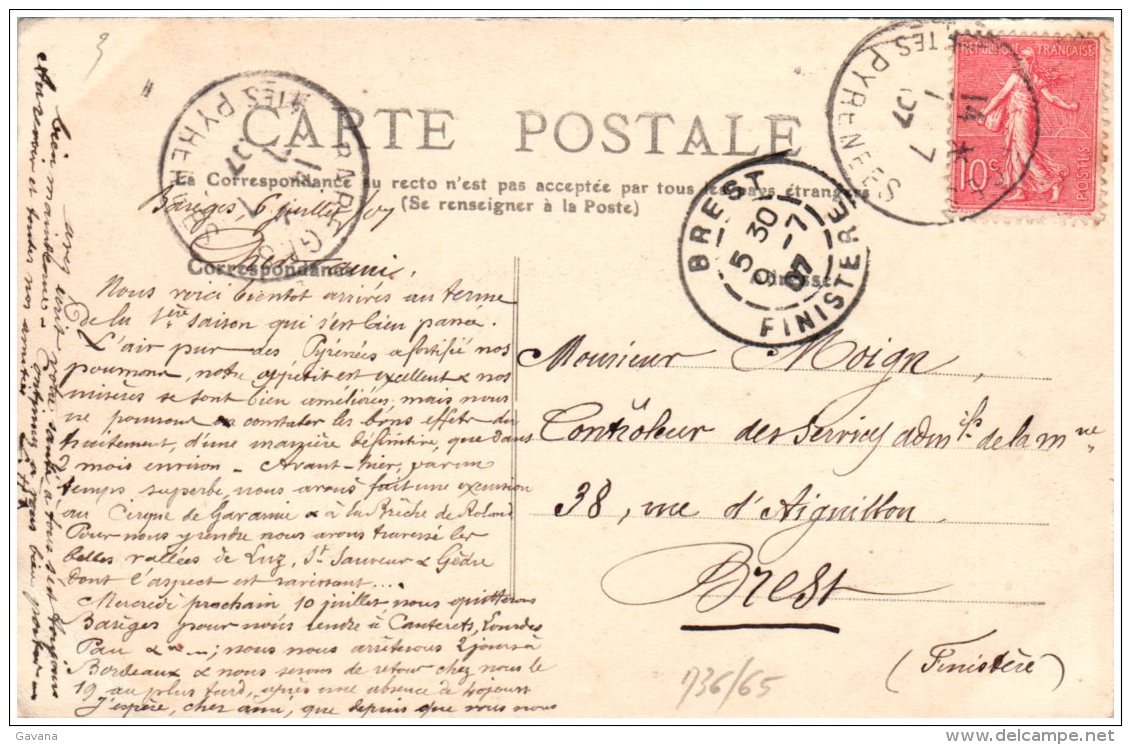 3
CARTE POSTALE
La Correspondance au recto n'est pas acceptée par tous les pays étrangers
(Se renseigner à la Poste)
RÉPUBLIQUE FRANÇAISE
10c
POSTES
HTES PYRENEES
14
7
07
BAREGES
HTES PYRENEES
14
7
07
BREST
5 30
9 - 7
07
FINISTERE
Barèges, 6 juillet 07
Correspondance
Adresse
Cher ami,
Nous voici bientôt arrivés au terme
de la 1ère saison qui s'est bien passée.
L'air pur des Pyrénées a fortifié nos
poumons, notre appétit est excellent & nos
misères se sont bien améliorées, mais nous
ne pourrons constater les bons effets du
traitement, d'une manière définitive, que dans
mois environ - Avant-hier, par un
temps superbe, nous avons fait une excursion
au Cirque de Gavarnie & à la Brèche de Roland
Pour nous y rendre nous avons traversé les
belles vallées de Luz, St Sauveur & Gèdre
dont l'aspect est ravissant....
Mercredi prochain 10 juillet nous quitterons
Barèges pour nous rendre à Cauterets, Lourdes
Pau &a ; nous nous arrêterons 2 jours à
Bordeaux & nous serons de retour chez nous le
19 au plus tard, après une absence de 40 jours
J'espère, cher ami, que depuis que vous nous
avez écrit votre santé à tous s'est toujours
bien maintenue - Continuez à vous bien porter
Au revoir et toutes nos amitiés
Monsieur Moign,
Contrôleur des Services admifs de la mne
38, rue d'Aiguillon
Brest
(Finistère)
1736/65
Gavana
www.delcampe.net